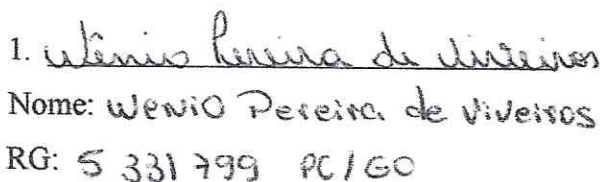 1. Wênio Pereira de Viveiros
Nome: Wenio Pereira de Viveiros
RG: 5 331 799 PC/GO